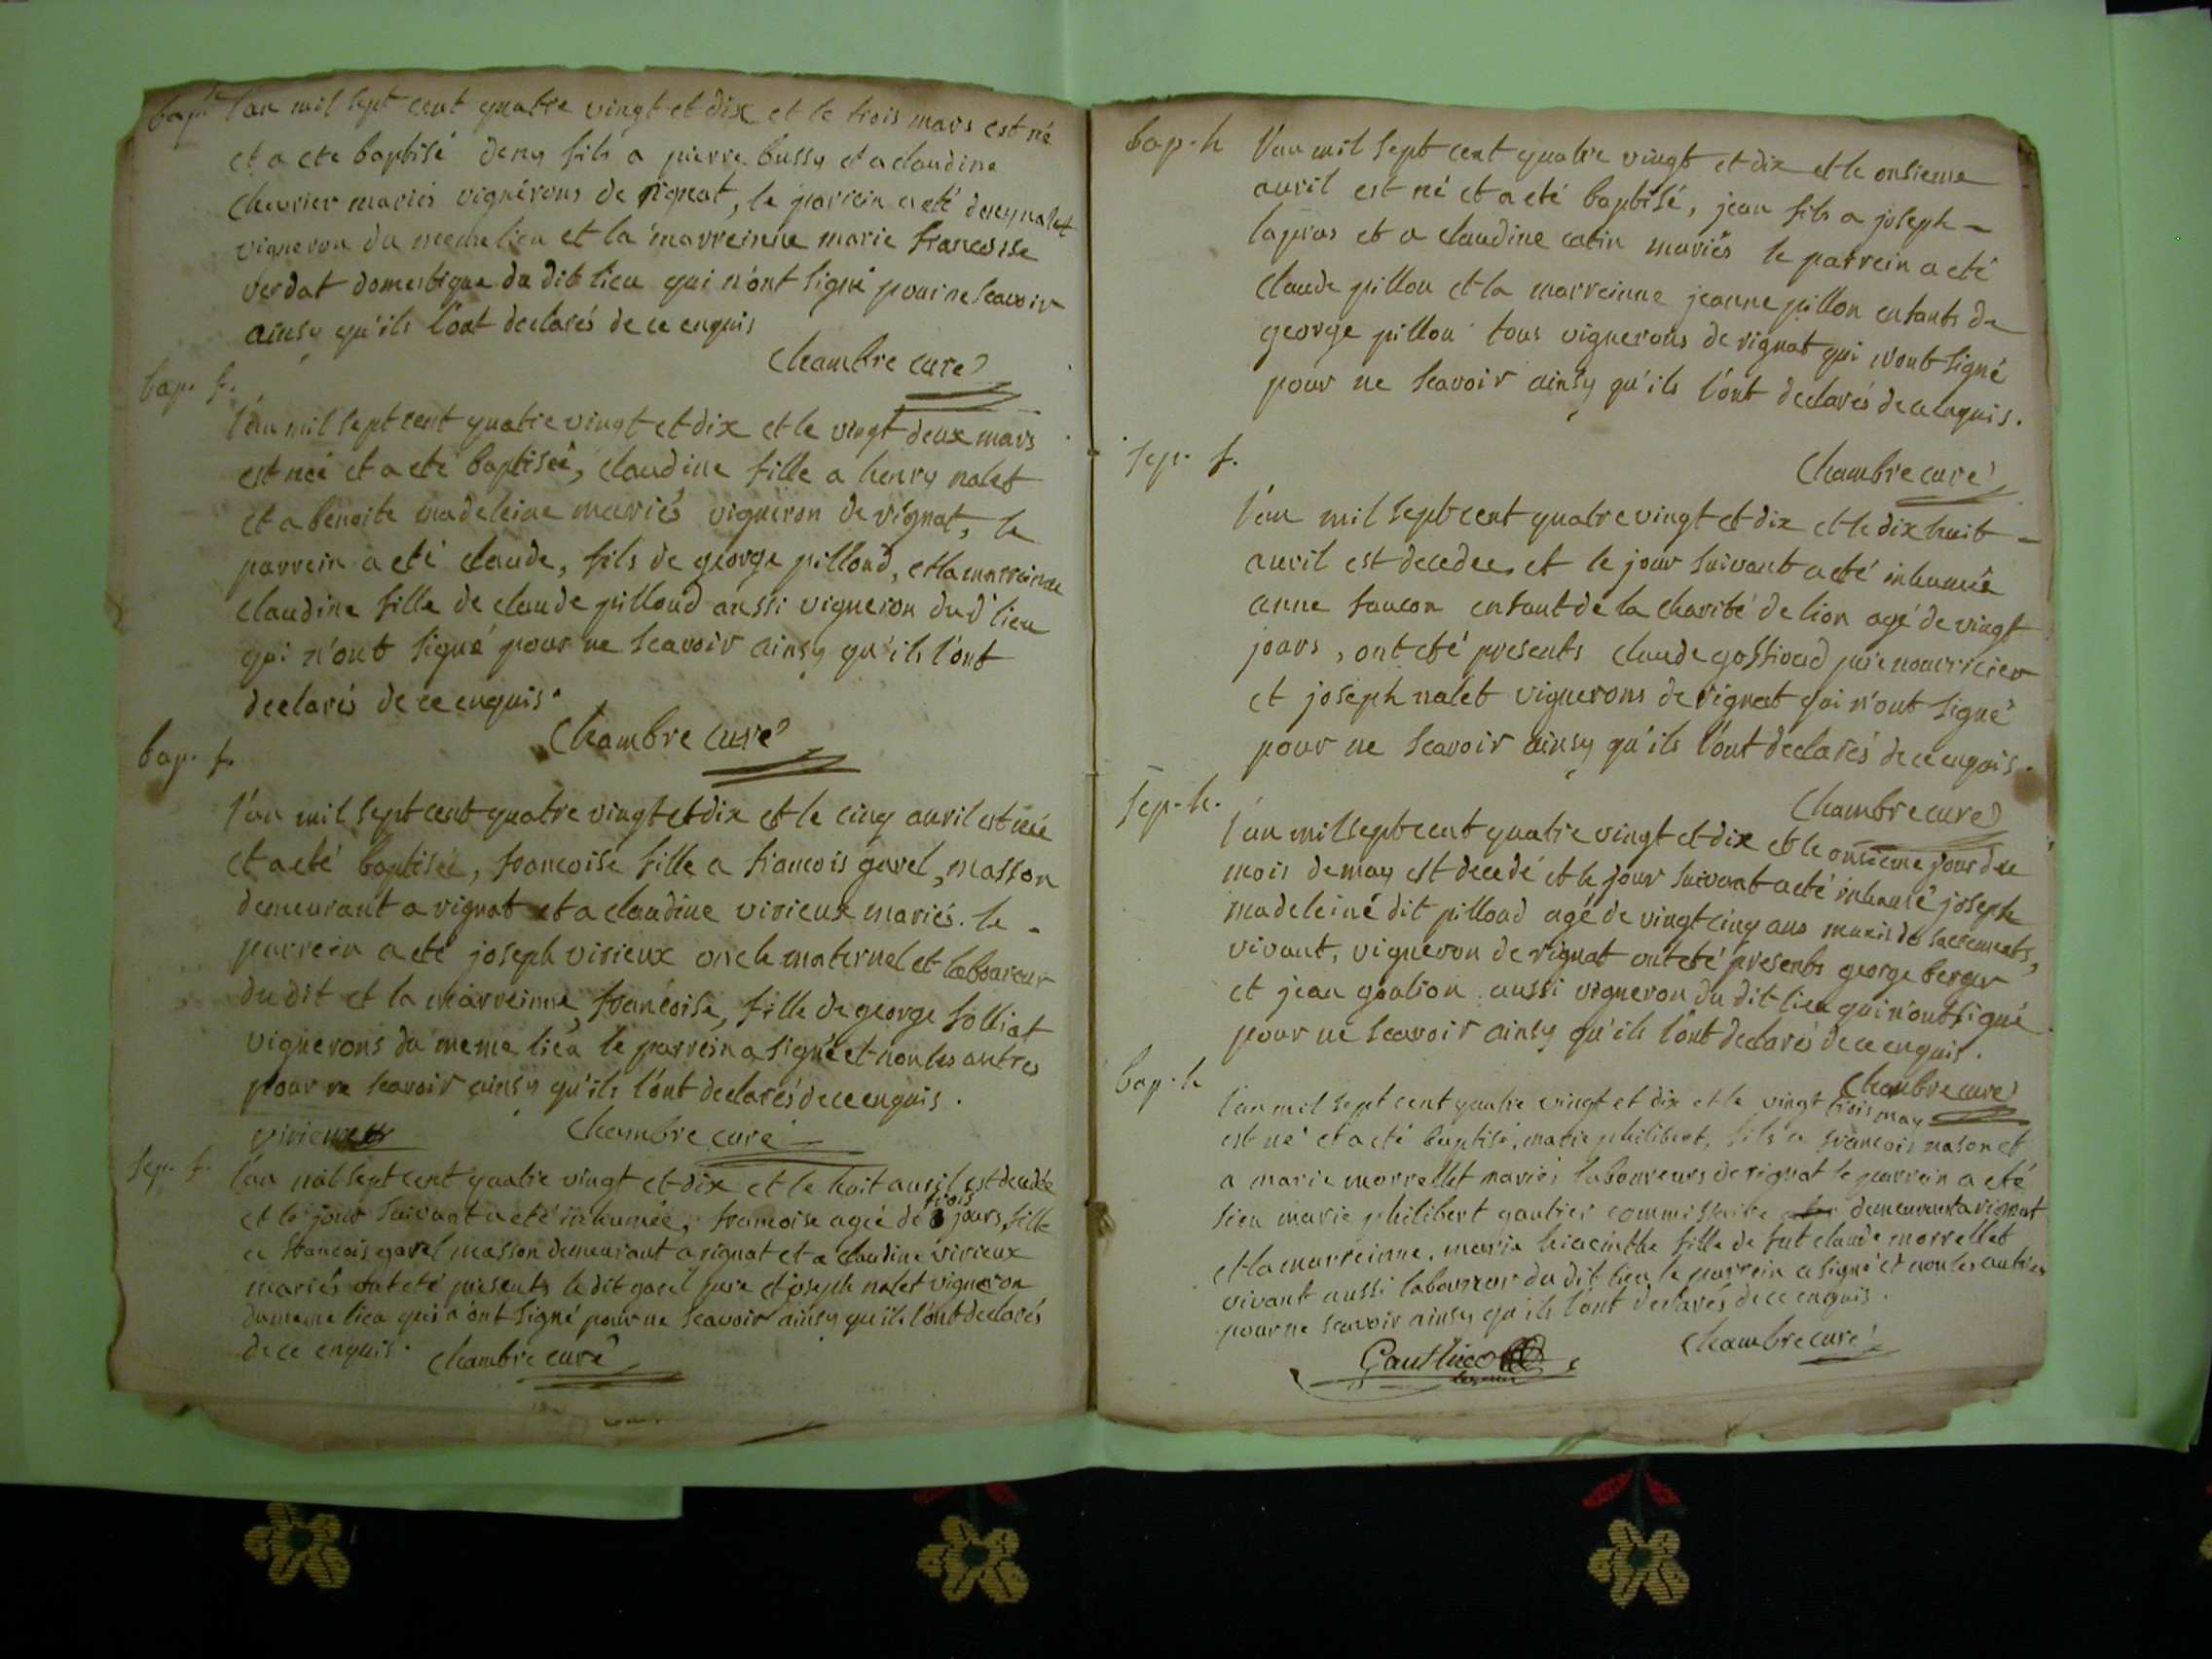 bap. h l'an mil sept cent quatre vingt et dix et le trois mars est né
et a ete baptisé deny fils a pierre bussy et a claudine
chevrier mariés vignérons de rignat, le parrein a eté deny nalet
vigneron du meme lieu et la marreinne marie francoise
verdat domestique du dit lieu qui n'ont signé pour ne scavoir
ainsy qu'ils l'ont declarés de ce enquis
chambre curé
bap. f.
l'an mil sept cent quatre vingt et dix et le vingt deux mars
est neé et a eté baptiseé, claudine fille a henry nalet
et a benoite madeleine mariés vigneron de rignat, le
parrein a eté claude, fils de george pilloud, et la marreinne
claudine fille de claude pilloud aussi vigneron du d' lieu
qui n'ont signé pour ne scavoir ainsy qu'ils l'ont
declarés de ce enquis.
chambre curé
bap. f.
l'an mil sept cent quatre vingt et dix et le cinq avril est neé
et a eté baptisée, francoise fille a francois gavel, masson
demeurant a rignat et a claudine virieux mariés. le
parrein a eté joseph virieux oncle maternel et laboureur
du dit et la marreinne, francoise, fille de george solliat
vignerons du meme lieu le parrein a signé et non les autres
pour ne scavoir ainsy qu'ils l'ont declarés de ce enquis.
virieux chambre curé
sep. f. l'an mil sept cent quatre vingt et dix et le huit avril est decedée
et le jour suivant a eté inhumée, francoise ageé de trois jours, fille
a francois gavel masson demeurant a rignat et a claudine virieux
mariés ont eté presents le dit gavel pere et joseph nalet vigneron
du meme lieu qui n'ont signé pour ne scavoir ainsy qu'ils l'ont declarés
de ce enquis. chambre curé
bap. h l'an mil sept cent quatre vingt et dix et le onsieme
avril est né et a eté baptisé, jean fils a joseph
lapras et a claudine catin mariés le parrein a eté
claude pillon et la marreinne jeanne pillon enfants de
george pillon tous vignerons de rignat qui n'ont signé
pour ne scavoir ainsy qu'ils l'ont declarés de ce enquis.
chambre curé
sep. f.
l'an mil sept cent quatre vingt et dix et le dix huit
avril est decedee, et le jour suivant a eté inhumée
anne faucon enfant de la charité de lion agé de vingt
jours, ont eté presents claude gossioud pere nourricier
et joseph nalet vignerons de rignat qui n'ont signé
pour ne scavoir ainsy qu'ils l'ont declarés de ce enquis.
chambre curé
sep. h.
l'an mil sept cent quatre vingt et dix et le onsieme jour du
mois de may est decedé et le jour suivant a eté inhumé joseph
madeleine dit pilloud agé de vingt cinq ans muni des sacrements,
vivant, vigneron de rignat ont eté presents george berger
et jean goalion aussi vigneron du dit lieu qui n'ont signé
pour ne scavoir ainsy qu'ils l'ont declarés de ce enquis.
chambre curé
bap. h
l'an mil sept cent quatre vingt et dix et le vingt trois may
est né et a eté baptisé, marie philibert, fils a francois nason et
a marie morrellet mariés laboureurs de rignat le parrein a eté
sieu marie philibert gautier commissaire demeurant a rignat
et la marreinne, marie hiacinthe fille de fut claude morrellet
vivant aussi laboureur du dit lieu, le parrein a signé et non les autres
pour ne scavoir ainsy qu'ils l'ont declarés de ce enquis.
Gauthier chambre curé